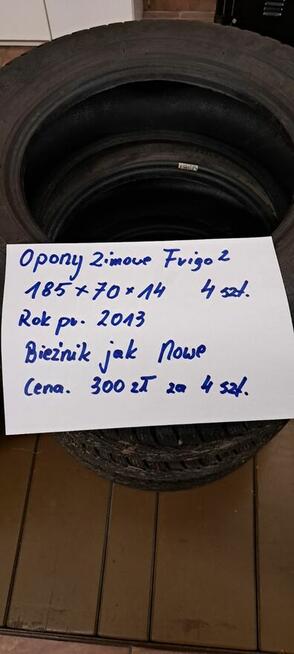 Opony Zimowe Frigo 2
185 x 70 x 14 4 szt.
Rok pr. 2013
Bieżnik jak Nowe
Cena. 300 zł za 4 szt.